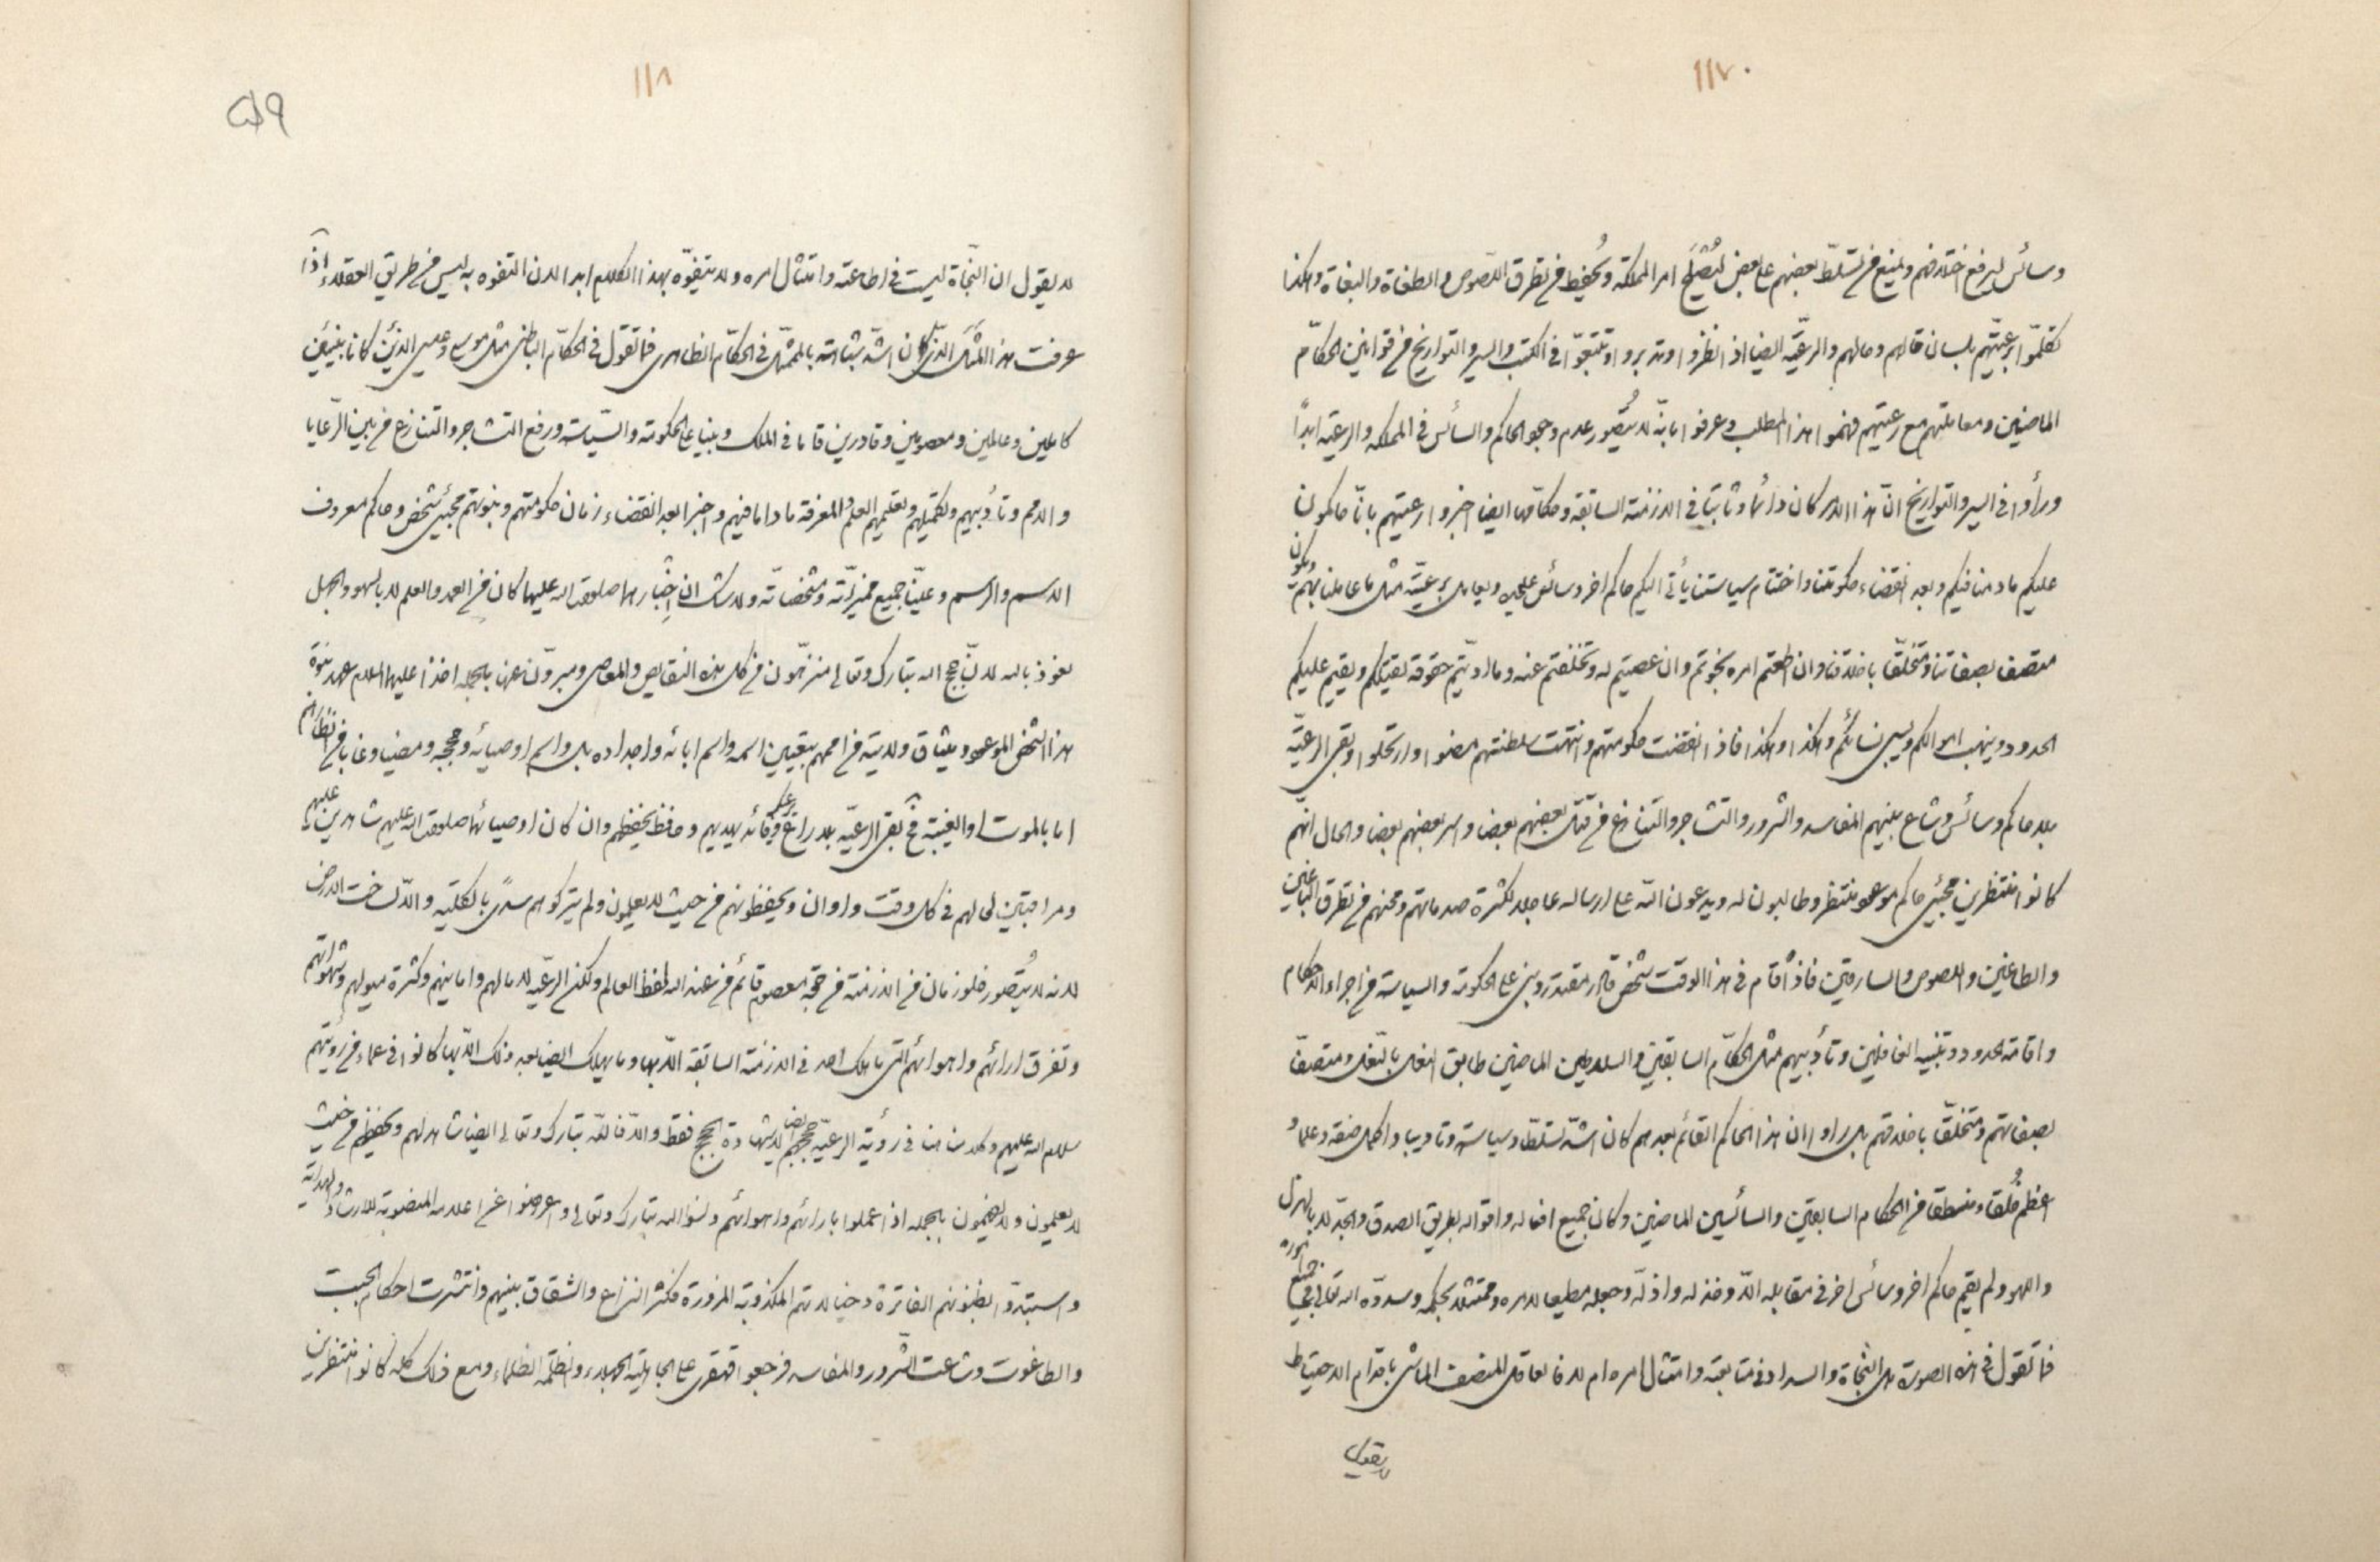 ١١٧
وسائس ليرفع اختلافهم ويمنع من تسلّط بعضهم على بعض ليُصلِح امر المملكة ويُحفِظ من تطرق اللّصوص والطغاة والبغاة وهكذا
تكلّموا برعيّتهم بلسان قالهم وحالهم والرعيّة ايضا اذا نظروا وتدبروا وتتبّعوا في الكتب والسير والتواريخ من قوانين الحكّام
الماضين ومعاملتهم مع رعيتهم فهموا هذا المطلب وعرفوا بانّه لا يُتصّور عدم وجود الحاكم والسائس في المملكه والرعيّة ابداً
ورأوا في السير والتواريخ انّ هذا الامر كان دائما وثابتا في الازمنة السابقة وحكّامها ايضا اخبروا رعيتهم بانّا حاكمون
عليكم مادمنا فيكم وبعد انقضاء حكومتنا واختتام سياستنا يأتي اليكم حاكم اخر وسائس عليحده ويعامل برعيّته مثل ما عاملنا بهم ويكون
متصف بصفاتنا ومتخلّقا باخلاقنا وان اطعتم امره نجوتم وان عصيتم له وتخلّفتم عنه وما ادّيتم حقوقه يقتلكم ويقيم عليكم
الحدود وينهب اموالكم ويسبى نسائكم وهكذا وهكذا فاذا انقضت حكومتهم وانتهت سلطنتهم مضوا وارتحلوا وبقى الرعيّة
بلا حاكم وسائس وشاع بينهم المفاسد والشرور والتشاجر والتنازع من قتل بعضهم بعضا واسر بعضهم بعضا والحال انّهم
كانوا منتظرين مجيئ حاكم موعود منتظر وطالبون له ويدعون اللّه على ارساله عاجلا لكثرة صدماتهم ومحنهم من تطرق الباغين
والطاغين واللصوص والسارقين فاذا قام في هذا الوقت شخص قادر مقتدر وبنى على الحكومة والسياسة من اجراء الاحكام
واقامة الحدود وتنبيه الغافلين وتأديبهم مثل الحكّام السابقين والسلاطين الماضين طابق النعل بالنّعل ومتصفا
بصفاتهم ومتخلّقا باخلاقهم بل راوا ان هذا الحاكم القائم بعدهم كان اشدّ تسلّطا وسياسة وتاديبا واكمل صفة وعلما و
اعظم خُلقا ومنطقا من الحكام السابقين والسائسين الماضين وكان جميع افعاله واقواله بطريق الصدق والجدّ لا بالهزل
واللهو ولم يقيم حاكم اخر وسائس اخر في مقابله الّا وخذله واذلّه وجعله مطيعا لامره وممتثلا بحكمه وسدّده الله تعالى في جميع اموره
فما تقول في هذه الصورة هل النّجاة والسداد في متابعته وامتثال امره ام لا فالعاقل المنصف الماشى باقدام الاحتياط
لا يقول
١١٨
٥٩
لا يقول ان النّجاة ليست في اطاعته وامتثال امره ولا يتفوّه بهذا الكلام ابدا لان التفوه به ليس من طريق العقلاء اذا
عرفت هذا المثَل الّذى كان اشدّ شباهة بالممثّل في الحكّام الظاهرى فما تقول في الحكّام الباطنى مثل موسى وعيسى الذَين كانا نبيّين
كاملين وعاملين ومعصومين وقادرين قاما في الملك وبنيا على الحكومة والسّياسة ورفع التشاجر والتنازع من بين الرّعايا
والامم وتأديبهم وتكميلهم وتعليمهم العلم والمعرفة مادامافيهم واخبرا بعد انقضاء زمان حكومتهم ونبوتهم بمجيئ شخص وحاكم معروف
الاسم والرسم وعيّنا جميع مميزاته ومشخصاته ولا شك ان اخبارهما صلوة الله عليهما كان من العمد والعلم لا بالسهو والجهل
نعوذ بالله لانّ حجج الله تبارك وتعالى منزهّون من كل هذه النقايص والمعاصى ومبروّن عنهن بالجمله اخذا عليهما السلام عهد نبوة
هذا الشخص الموعود وميثاق ولايته من اممهم بتعيين اسمه واسم ابائه واجداده بل واسم اوصيائه وحججه ومضيا وغابا من انظارهم
اما بالموت او الغيبة فح بقى الرعيّة بلا راع وقائد يهديهم وحافظ يحفظهم وان كان اوصيائهما صلوة الله عليهم شاهدين عليهم
ومراقبين لحالهم في كل وقت واوان ويحفظونهم من حيث لا يعلمون ولم يتركوهم سدًى بالكليّة والّا لساخت الارض
لانه لا يُتصّور خلو زمان من الازمنة من حجّة معصوم قائم من عند الله لحفظ العالم ولكن الرعّيه لامالهم وامانيهم وكثرة ميولهم وشهواتهم
وتفرق ارائهم واهوائهم التى ما هلك احد في الازمنة السابقة الّا بها وما يهلك ايضا بعد ذلك الّا بها كانوا في عماء من رؤيتهم
سلام الله عليهم وكلامنا هنا في رؤية الرعيّه حججهم لا بشهادة الحجج فقط والّا فاللّه تبارك وتعالى ايضا شاهد لهم ويحفظهم من حيث
لا يعلمون ولا يفهمون بالجمله اذا عملوا بارائهم واهوائهم ونسوا الله تبارك وتعالى واعرضوا عن اعلامه المنصوبة للارشاد والهداية
واستبدّوا بظنونهم الفاترة وخيالاتهم المكذوبة المزورة فكثر النزاع والشقاق بينهم وانتشرت احكام الجبت
والطاغوت وشاعت الشّرور والمفاسد فرجعوا قهقرى على الجاهلية الجهلاء والظلمة الظلماء ومع ذلك كله كانوا منتظرين